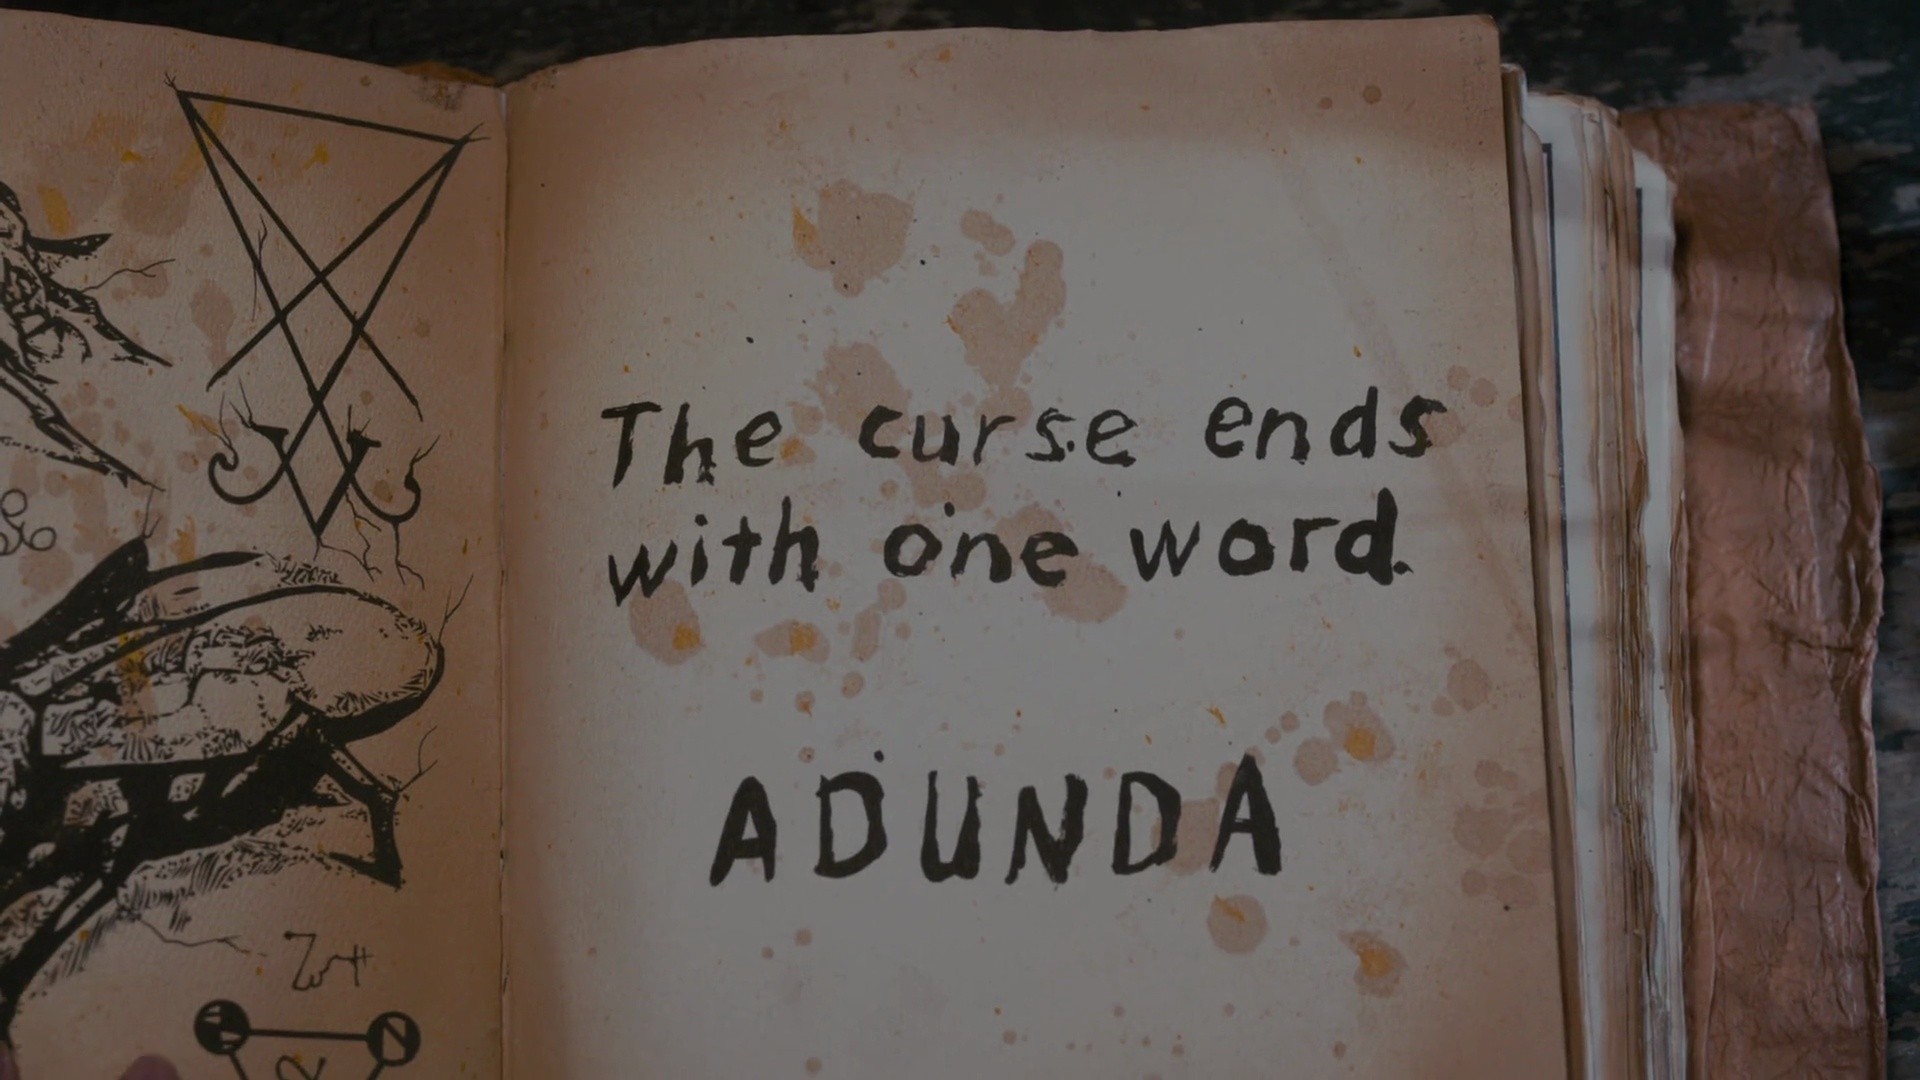 The curse ends
with one word.
ADUNDA